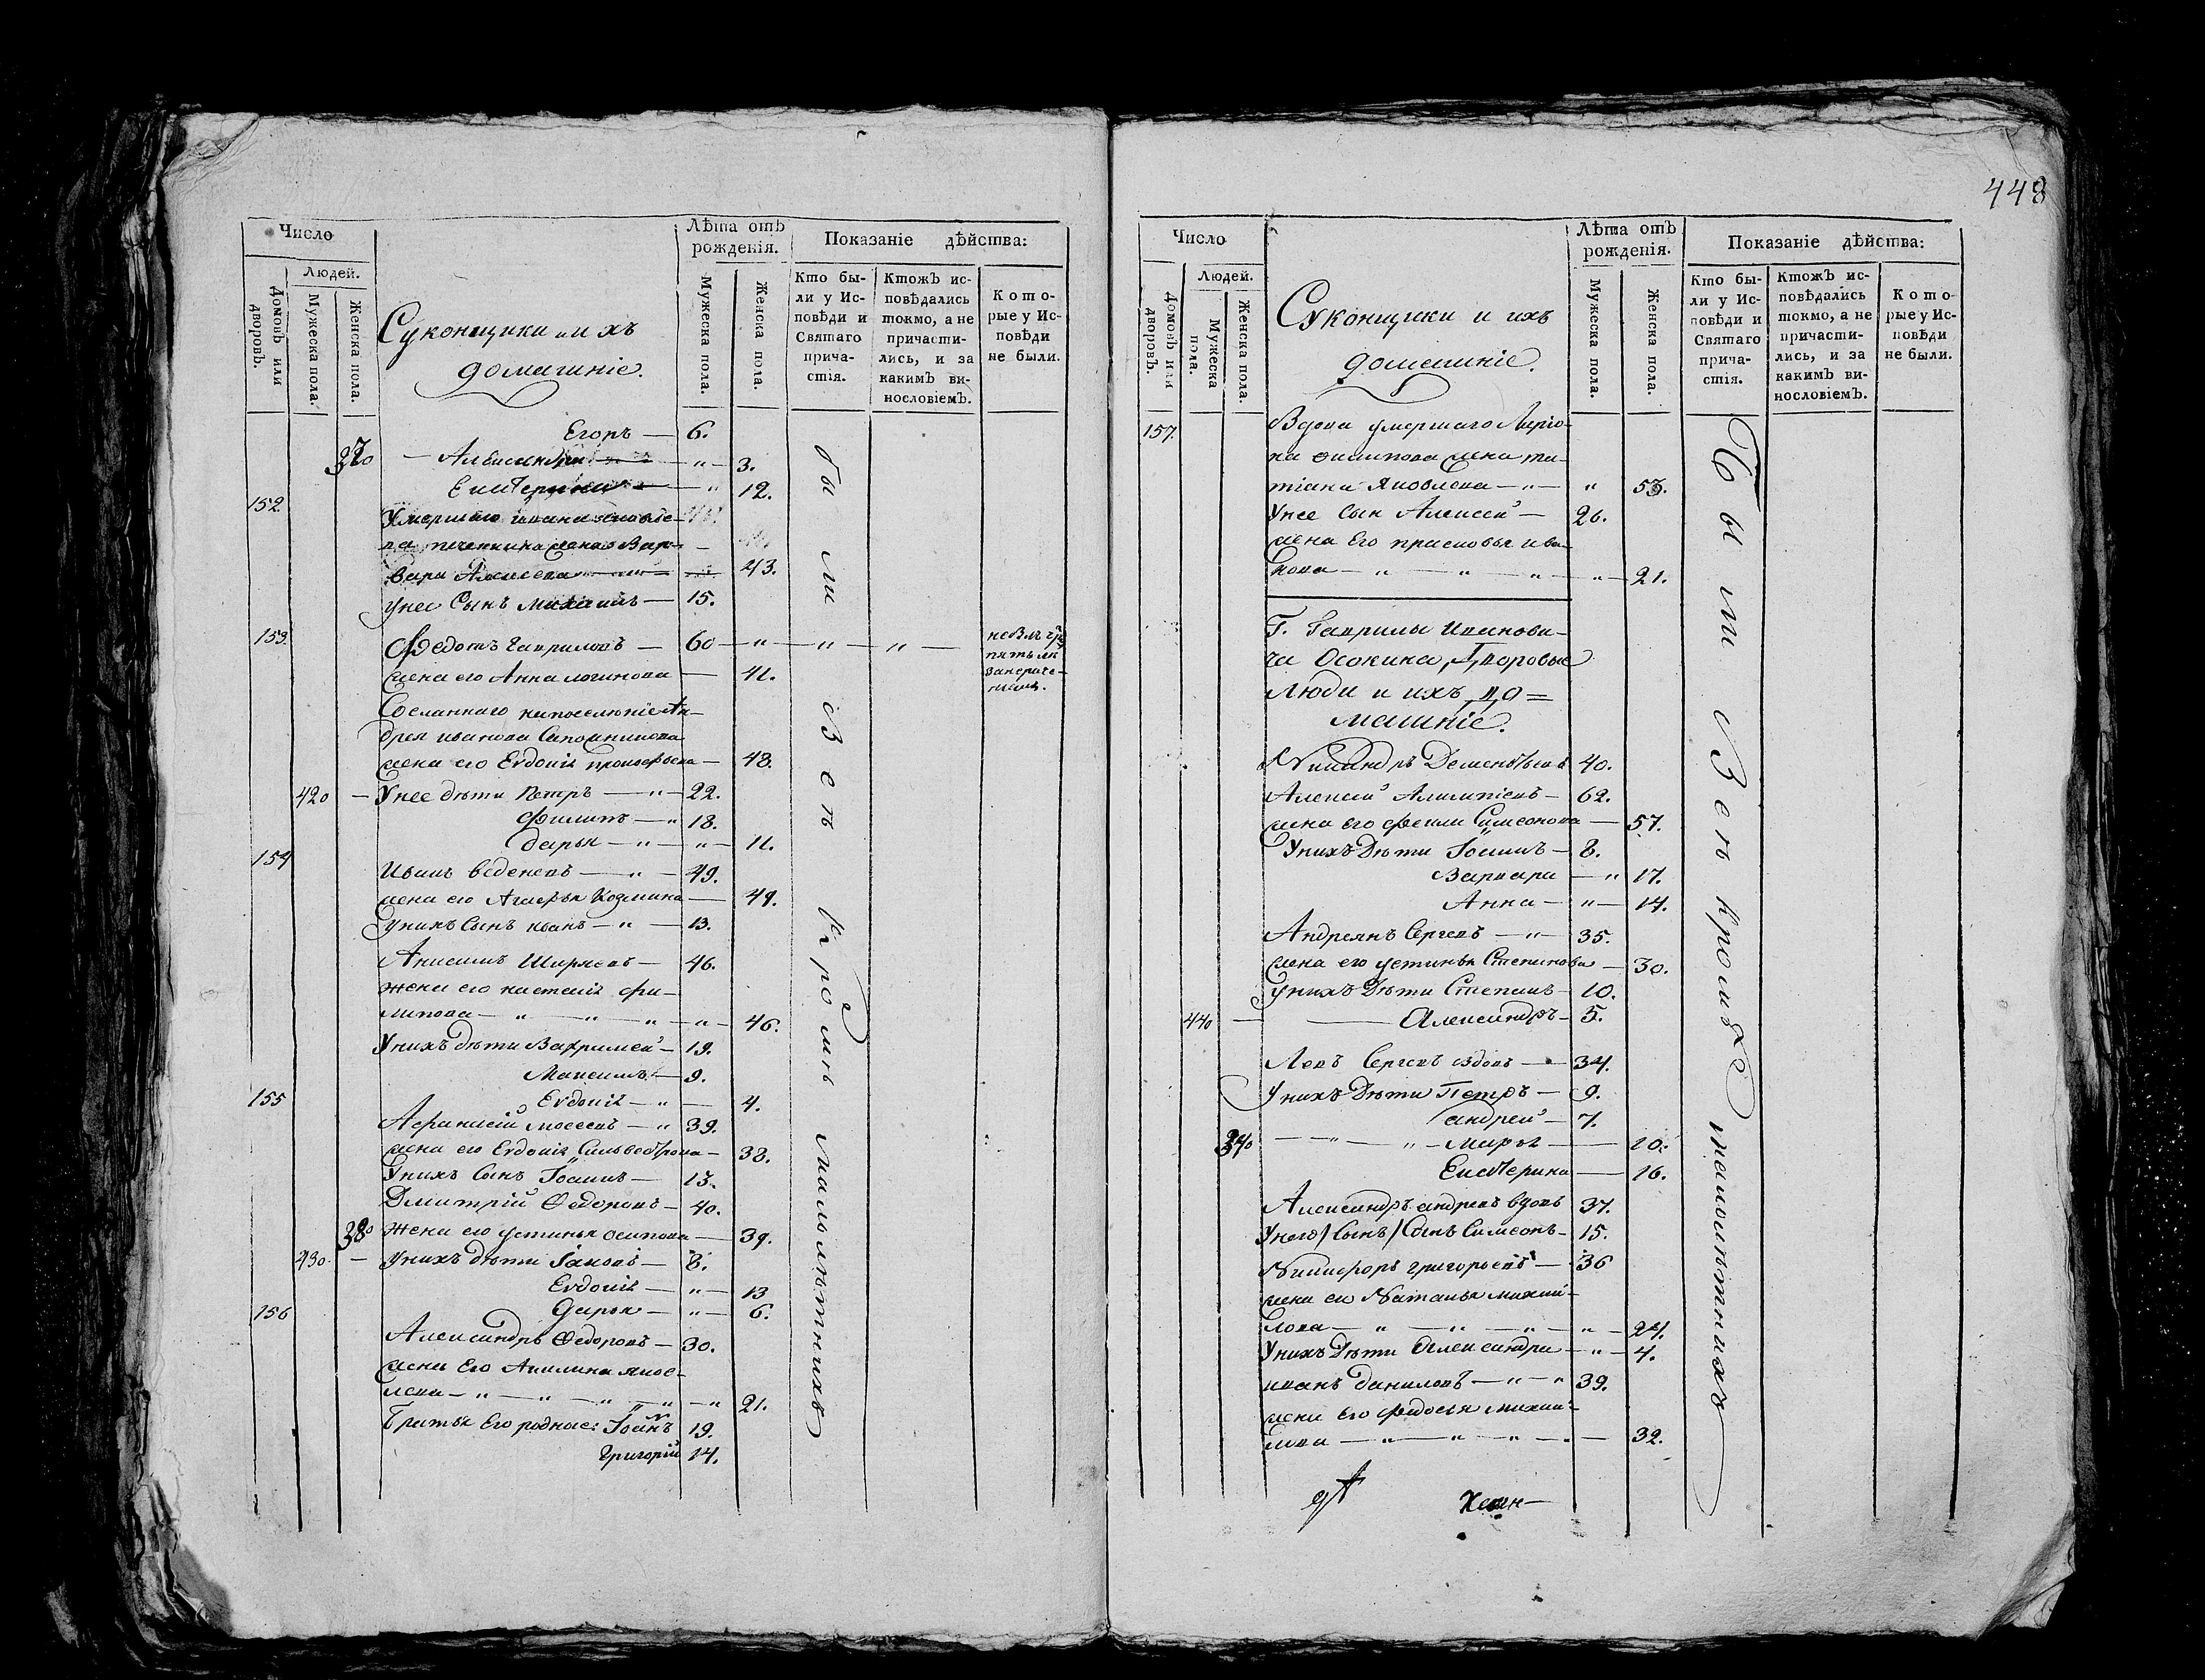 448
Число
Людей.
Домовъ или дворовъ.
Мужеска пола.
Женска пола.
Суконщики и ихъ
домашніе.
Лѣта отъ
рожденія.
Мужеска пола.
Женска пола.
Показаніе дѣйства:
Кто бы-
ли у Ис-
повѣди и
Святаго
прича-
стія.
Ктожъ ис-
повѣдались
токмо, а не
причасти-
лись, и за
какимъ ви-
нословіемъ.
Кото-
рые у Ис-
повѣди
не были.
Егоръ — 6.
370 — Александра — „ — 3.
Екатерина — „ 12.
152
Умершаго ивана яковле-
ва печенкина жена Вар-
вара Алексеева — 43.
унее Сынъ михаилъ — 15.
153 Федотъ Гавриловъ — 60 — „ — „ — „ —
жена его Анна логинова — 41.
Сосланнаго напоселение Ан-
дрея иванова Сапожникова
жена его Евдокія прокофьева — 48.
420 — Унее дѣти Петръ — „ — 22.
Филипъ — „ 18.
дарья — „ — „ — 11.
154
Иванъ веденевъ — „ — 49.
жена его Агафья Козмина — 49.
унихъ Сынъ иванъ — „ — 13.
Анисимъ Ширяевъ — 46.
жена его настасія фи-
липова — „ — „ — „ — „ — 46.
Унихъ дѣти Варфламей — 19.
Максимъ — 9.
155 Евдокія — „ — 4.
Афанасій моесеевъ — „ 39.
жена его Евдокія Сильвестрова — 38.
Унихъ Сынъ Іоаннъ — 13.
Дмитрій Федоровъ — 40.
380 жена его устинья осипова — 39.
430 — унихъ дѣти Іаковъ — 8.
Евдокія — „ — 13
156 Дарья — „ — 6.
Александръ Федоровъ — 30.
жена Его Акилина яков-
лева — „ — „ — „ — „ — „ 21.
Братья Его родные: Іоанъ 19.
Григорій 14.
были Всѣ кромѣ малолѣтнихъ
Число
Людей.
Домовъ или дворовъ.
Мужеска пола.
Женска пола.
Суконщики и ихъ
домашніе.
Лѣта отъ
рожденія.
Мужеска пола.
Женска пола.
Показаніе дѣйства:
Кто бы-
ли у Ис-
повѣди и
Святаго
прича-
стія.
Ктожъ ис-
повѣдались
токмо, а не
причасти-
лись, и за
какимъ ви-
нословіемъ.
Кото-
рые у Ис-
повѣди
не были.
157. Вдова умершаго Ларио-
на филипова жена та-
тіана Яковлева — „ — „ 53.
Унее Сын Алексей — 26.
жена Его прасковья ива-
нова — „ — „ — „ — „ — 21.
Г. Гаврилы Иванови-
ча Осокина, Дворовые
люди и ихъ до=
машніе.
Никандръ Дементьевъ 40.
Алексей Алимпіевъ — 62.
жена его фекла Симеонова — 57.
Унихъ Дѣти Іоаннъ — 8.
Варвара — „ 17.
Анна — „ — 14.
Андреянъ Сергеевъ — „ — 35.
жена его устинья Степанова — 30.
унихъ Дѣти Степанъ — 10.
440 — Александръ — 5.
Левъ Сергеевъ вдовъ — 34.
Унихъ Дѣти Петръ — 9.
андрей — 7.
390 — „ — „ — Марья — 10.
Екатерина — 16.
Александръ андреевъ вдовъ 37.
Унего/Сынъ/Сынъ Симеонъ — 15.
Никифоръ григорьевъ — 36
жена ево Наталья михай-
лова — „ — „ — „ — „ — 24.
Унихъ Дѣти Александра — „ — 4.
иванъ даниловъ — „ — „ 39.
жена Его федосья михай-
лова — „ — „ — „ — 32.
Были Всѣ кромѣ малолѣтнихъ